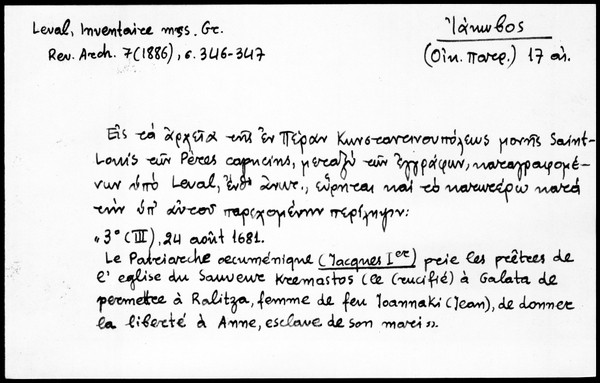 Leval, Inventaire mss. Gr.
Rev. Arch. 7(1886), σ. 346-347
Ἰάκωβος
(Οἰκ. Πατρ.) 17 αἰ.
Εἰς τά ἀρχεῖα τῆς ἐν Πέραν Κωνσταντινουπόλεως μονῆς Saint-
Louis τῶν Pères capucins, μεταξύ τῶν ἐγγράφων, καταγραφομέ-
νων ὑπό Leval, ἔνθ' ἀνωτ., εὕρηται καί τό κατωτέρω κατά
τήν ὑπ' αὐτοῦ παρεχομένην περίληψιν:
«3° (III), 24 août 1681.
Le Patriarche œcuménique (Jacques Ier) prie les prêtres de
l'eglise du Sauveur Kremastos (le Crucifié) à Galata de
permettre à Ralitza, femme de feu Joannaki (Jean), de donner
la liberté à Anne, esclave de son mari».